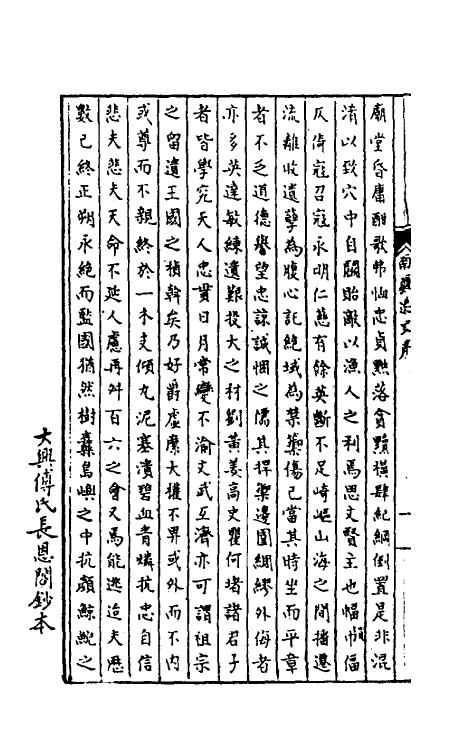 廟堂昏庸酣歌弗恤忠貞黜落貪黷橫肆紀綱倒置是非混
淆以致穴中自鬬貽敵以漁人之利焉思文賢主也幅𢂿偪
仄倚寇召寇永明仁慈有餘英斷不足崎嶇山海之間播遷
流離收遺孽為腹心託絶域為禁籞傷已當其時坐而平章
者不乏道德譽望忠諒誠悃之儒其捍禦邊圉綢繆外侮者
亦多英達敏練遺艱投大之材劉黃姜高史瞿何堵諸君子
者皆學究天人忠貫日月常變不渝文武互濟亦可謂祖宗
之留遺王國之楨幹矣乃好爵虛縻大權不畀或外而不内
或尊而不親終於一木支傾丸泥塞潰碧血青燐抗忠自信
悲夫悲夫天命不延人慮再舛百六之會又焉能逃迨夫歷
數已終正朔永絶而監國猶然樹纛島嶼之中抗顔鯨鯢之
大興傅氏長恩閣鈔本